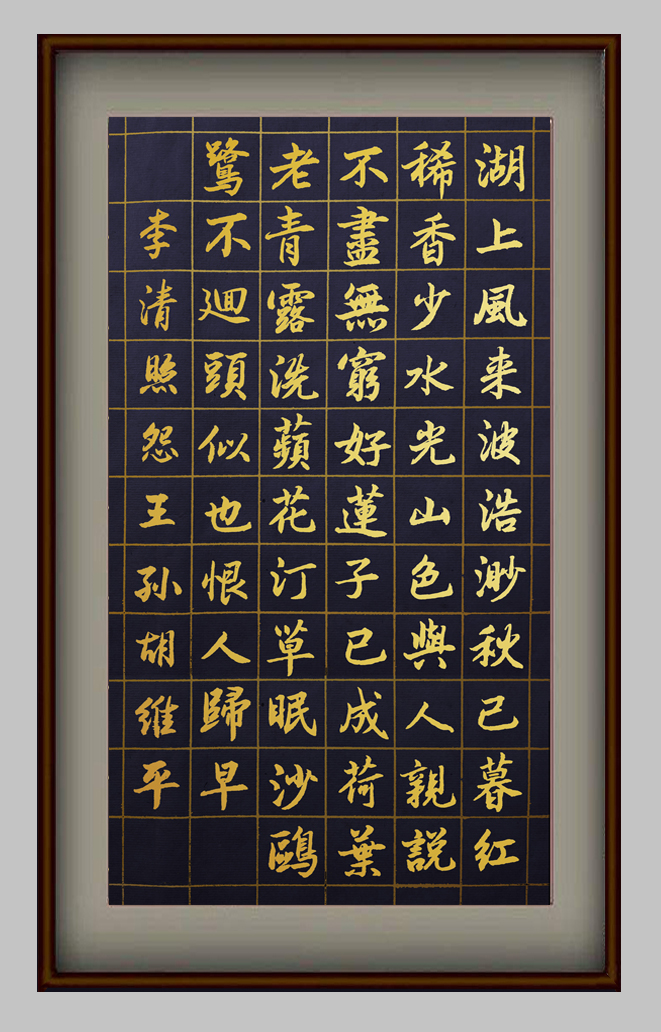 湖上風来波浩渺秋已暮紅
稀香少水光山色與人親説
不盡無窮好蓮子已成荷葉
老青露洗蘋花汀草眠沙鷗
鷺不迴頭似也恨人歸早
李清照怨王孙胡維平